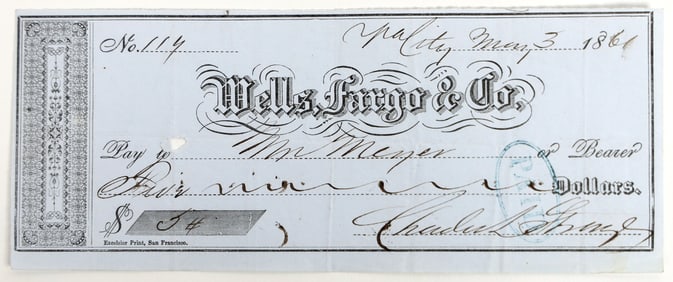 No. 119 Va City May 3 1861
Wells, Fargo & Co.
Pay to Wm Meyer or Bearer
Five Dollars.
PAID
$ 5 Charles L Strong
Excelsior Print, San Francisco.